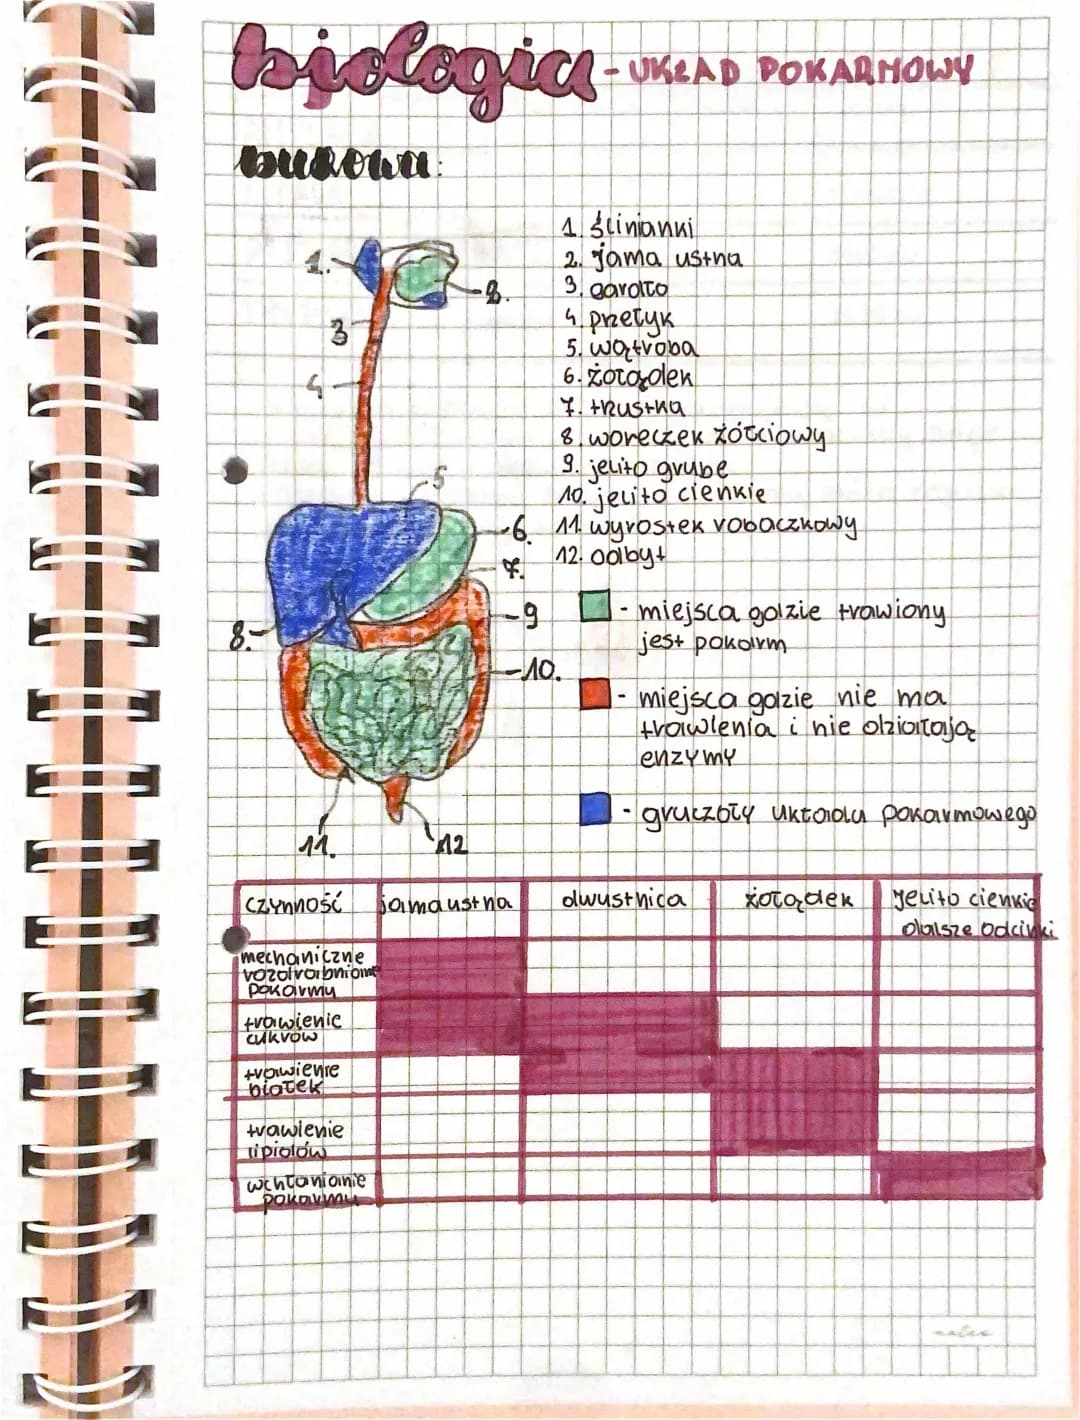 biologia - UKŁAD POKARMOWY
budowa:
1. ślinianki
2. jama ustna
3. gardło
4. przełyk
5. wątroba
6. żołądek
7. trzustka
8. woreczek żółciowy
9. jelito grube
10. jelito cienkie
11. wyrostek robaczkowy
12. odbyt
1.
2.
3
4
5
6.
7.
8.
9
10.
11.
12
- miejsca gdzie trawiony
jest pokarm
- miejsca gdzie nie ma
trawienia i nie działają
enzymy
- gruczoły układu pokarmowego
czynność jama ustna dwustnica żołądek jelito cienkie
dalsze odcinki
mechaniczne
rozdrabnianie
pokarmu
trawienie
cukrów
trawienie
białek
trawienie
lipidów
wchłanianie
pokarmu
notes